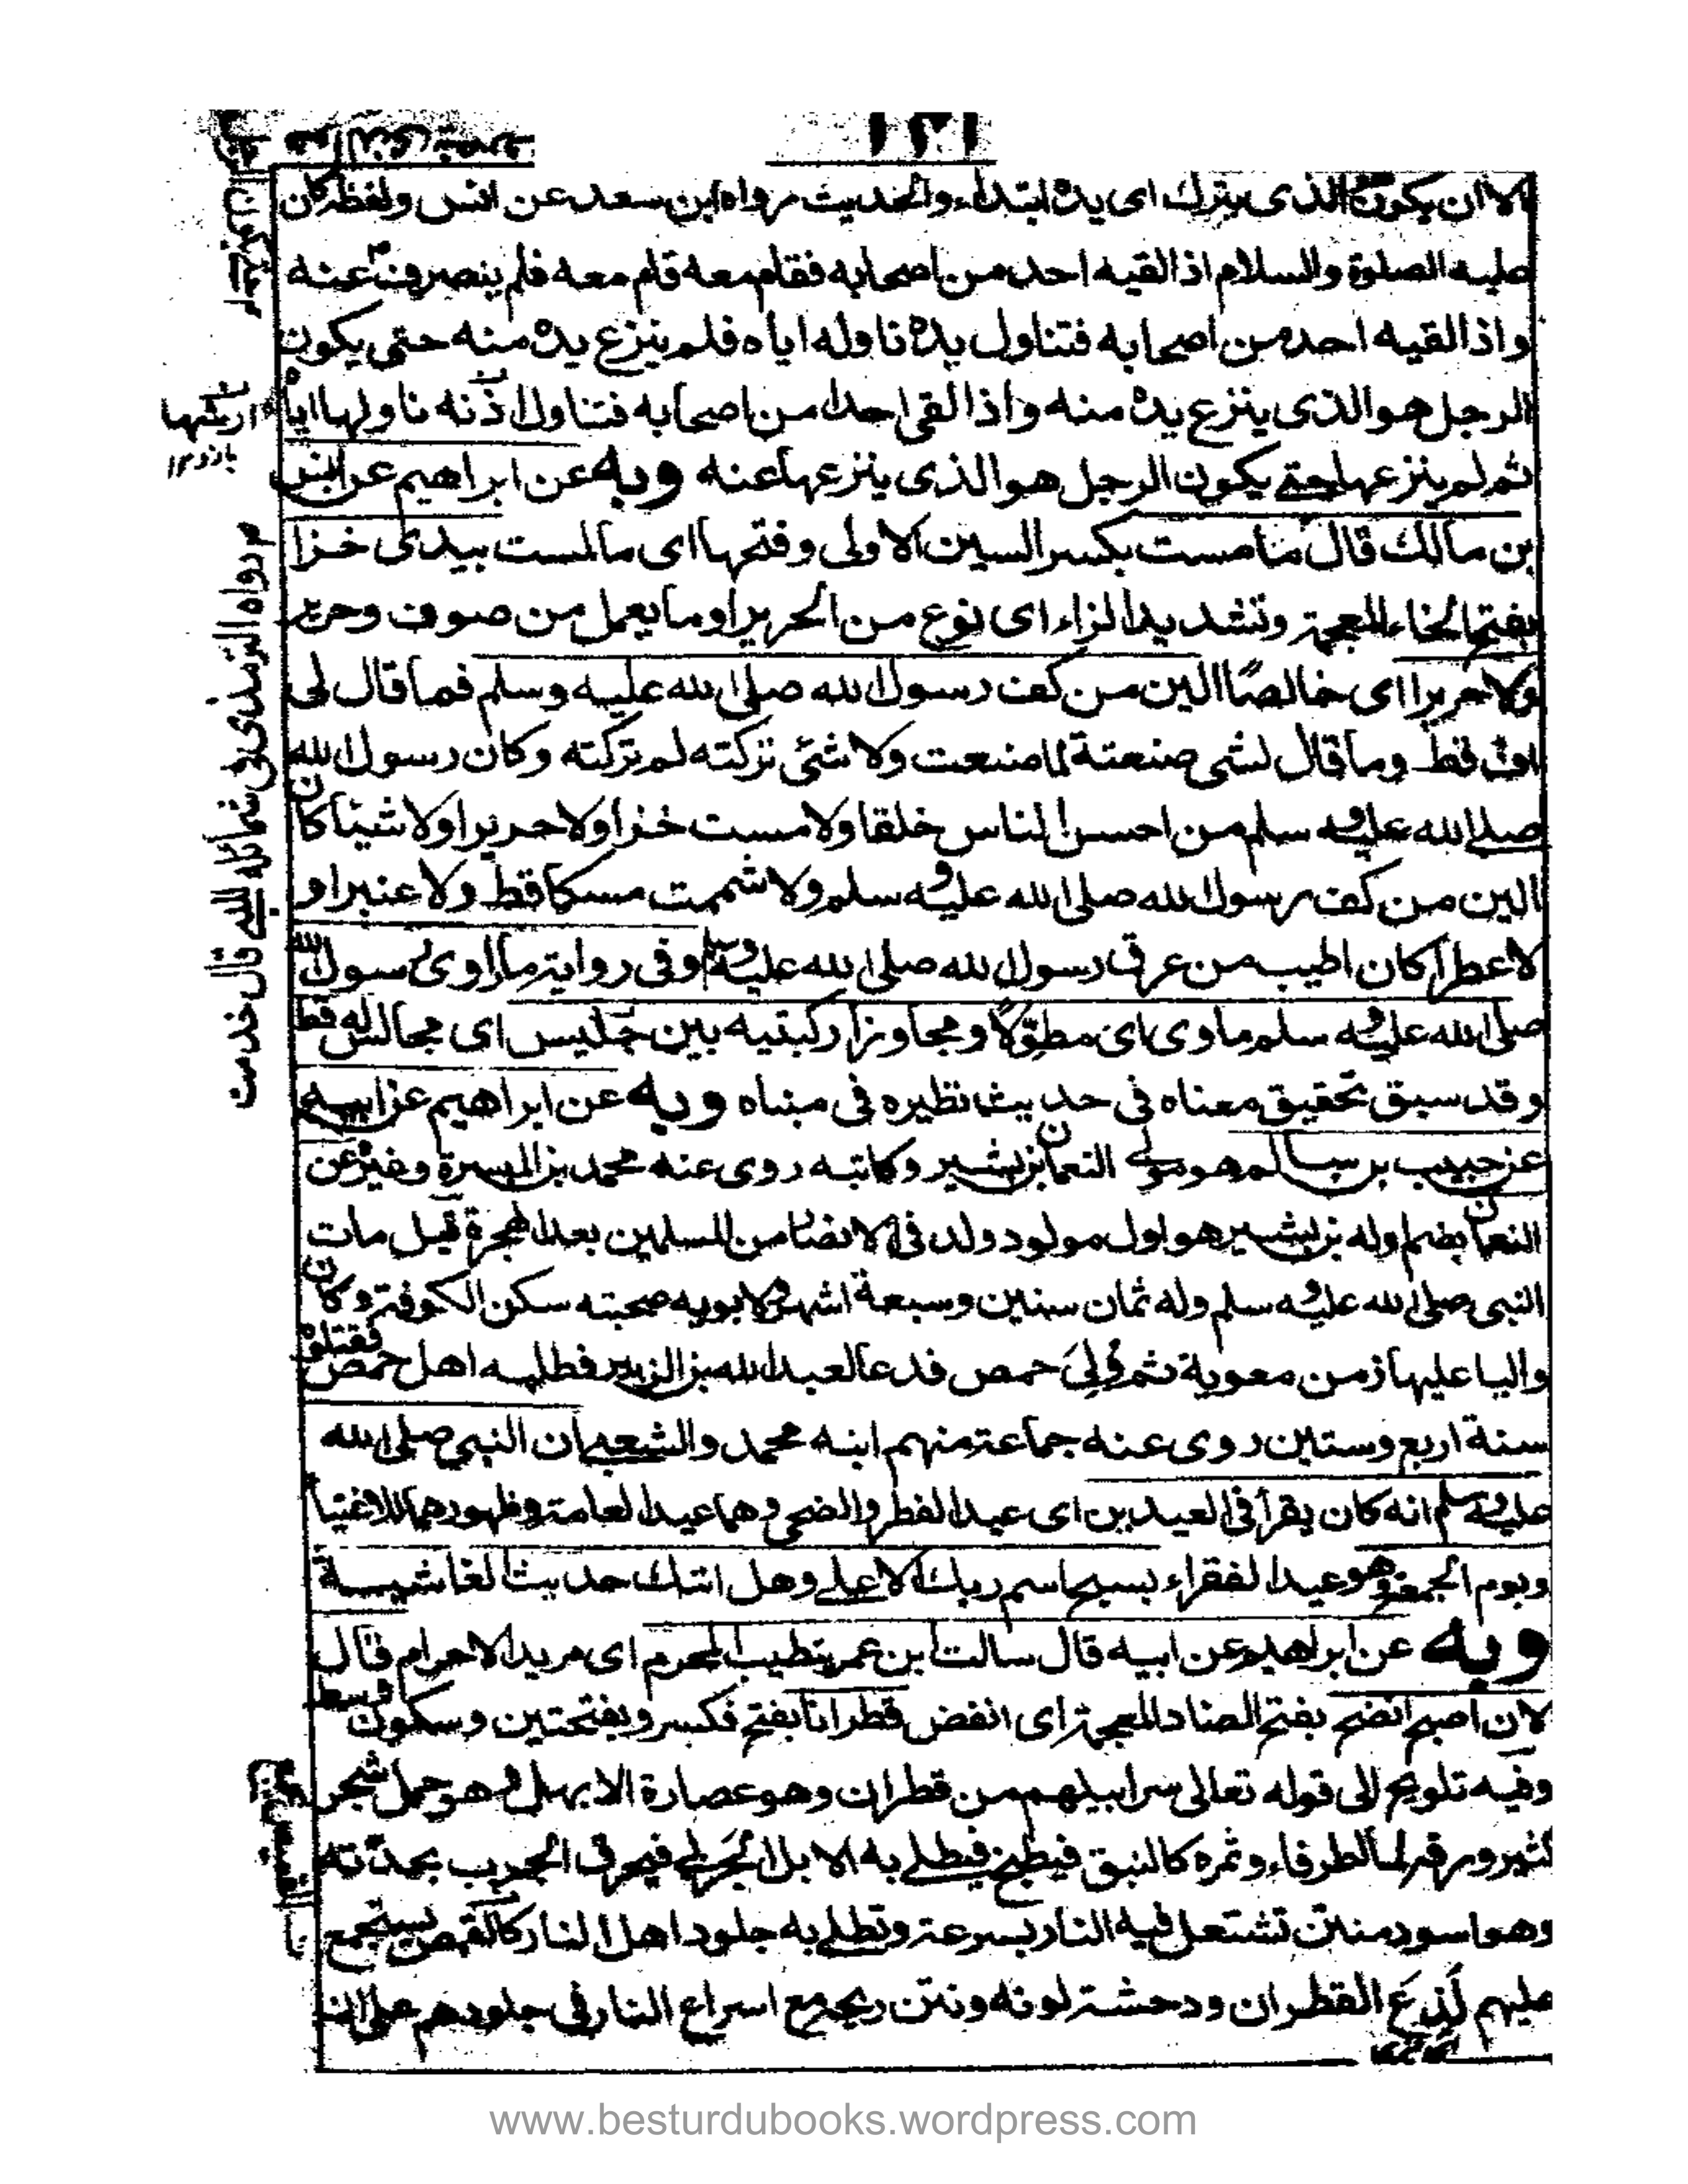 ١٢١
الا ان يكون الذى يترك اى يده ابتداء والحديث رواه ابن سعد عن انس ولفظه كان
عليه الصلوة والسلام اذ القيه احد من اصحابه فقام معه قام معه فلم ينصرف عنه
واذ القيه احد من اصحابه فتناول يده ناوله اياه فلم ينزع يده منه حتى يكون
الرجل هو الذى ينزع يده منه واذا لقى احدا من اصحابه فتناول اذنه ناولها اياه
ثم لم ينزعها حتى يكون الرجل هو الذى ينزعها عنه وبه عن ابراهيم عن انس
بن مالك قال ما مست بكسر السين الاولى وفتحها اى مالمست بيدى خزا
بفتح الخاء المعجمة وتشديد الزاء اى نوع من الحرير او ما يعمل من صوف وحرير
ولا حريرا اى خالصًا الين من كف رسول الله صلى الله عليه وسلم فما قال لى
اف قط وما قال لشى صنعته لما صنعت ولا شئ تركته لم تركته وكان رسول الله
صلى الله عليه وسلم من احسن الناس خلقا ولا مست خزا ولا حريرا ولا شيئا كان
الين من كف رسول الله صلى الله عليه وسلم ولا شممت مسكا قط ولا عنبرا و
لا عطرا كان اطيب من عرق رسول الله صلى الله عليه وسلم وفى رواية ما اوى رسول الله
صلى الله عليه وسلم ماوى اى مطوّلًا ومجاوزا ركبتيه بين جليس اى مجالس له قط
وقد سبق تحقيق معناه فى حديث نظيره فى مبناه وبه عن ابراهيم عن ابيه
عن حبيب بن سالم هو مولى النعمان بن بشير وكاتبه روى عنه محمد بن المسرة وغيره عن
النعمان بضم اوله بن بشير هو اول مولود ولد فى الانصار من المسلمين بعد الهجرة قيل مات
النبى صلى الله عليه وسلم وله ثمان سنين وسبعة اشهر ولابويه صحبته سكن الكوفة وكان
واليا عليها زمن معوية ثم ولى حمص فدعا لعبد الله بن الزبير فطلبه اهل حمص فقتلوه
سنة اربع وستين روى عنه جماعة منهم ابنه محمد والشعبى ان النبى صلى الله
عليه وسلم انه كان يقرأ فى العيدين اى عيد الفطر والضحى وهما عيد العامة وظهورهما للاغنياء
ويوم الجمعة وهو عيد الفقراء بسبح اسم ربك الاعلى وهل اتىك حديث الغاشية
وبه عن ابراهيم عن ابيه قال سالت ابن عمر يتطيب المحرم اى مريد الاحرام قال
لان اصبح انضح بفتح الضاد المعجمة اى انفض قطرانا بفتح فكسر وبفتحتين وسكون وسط
وفيه تلويح الى قوله تعالى سرابيلهم من قطران وهو عصارة الابهل وهو حمل شجر
كبير ورقه كالطرفاء وثمره كالنبق فيطبخ فيطلى به الابل الجربى فيحرق الجرب بحدته
وهو اسود منتن تشتعل فيه النار بسرعة وتطلى به جلود اهل النار كالقمص يستجمع
عليهم لذع القطران ووحشة لونه ونتن ريحه مع اسراع النار فى جلودهم على ان
رواه الترمذى فى شمائله
قال خدمت
www.besturdubooks.wordpress.com